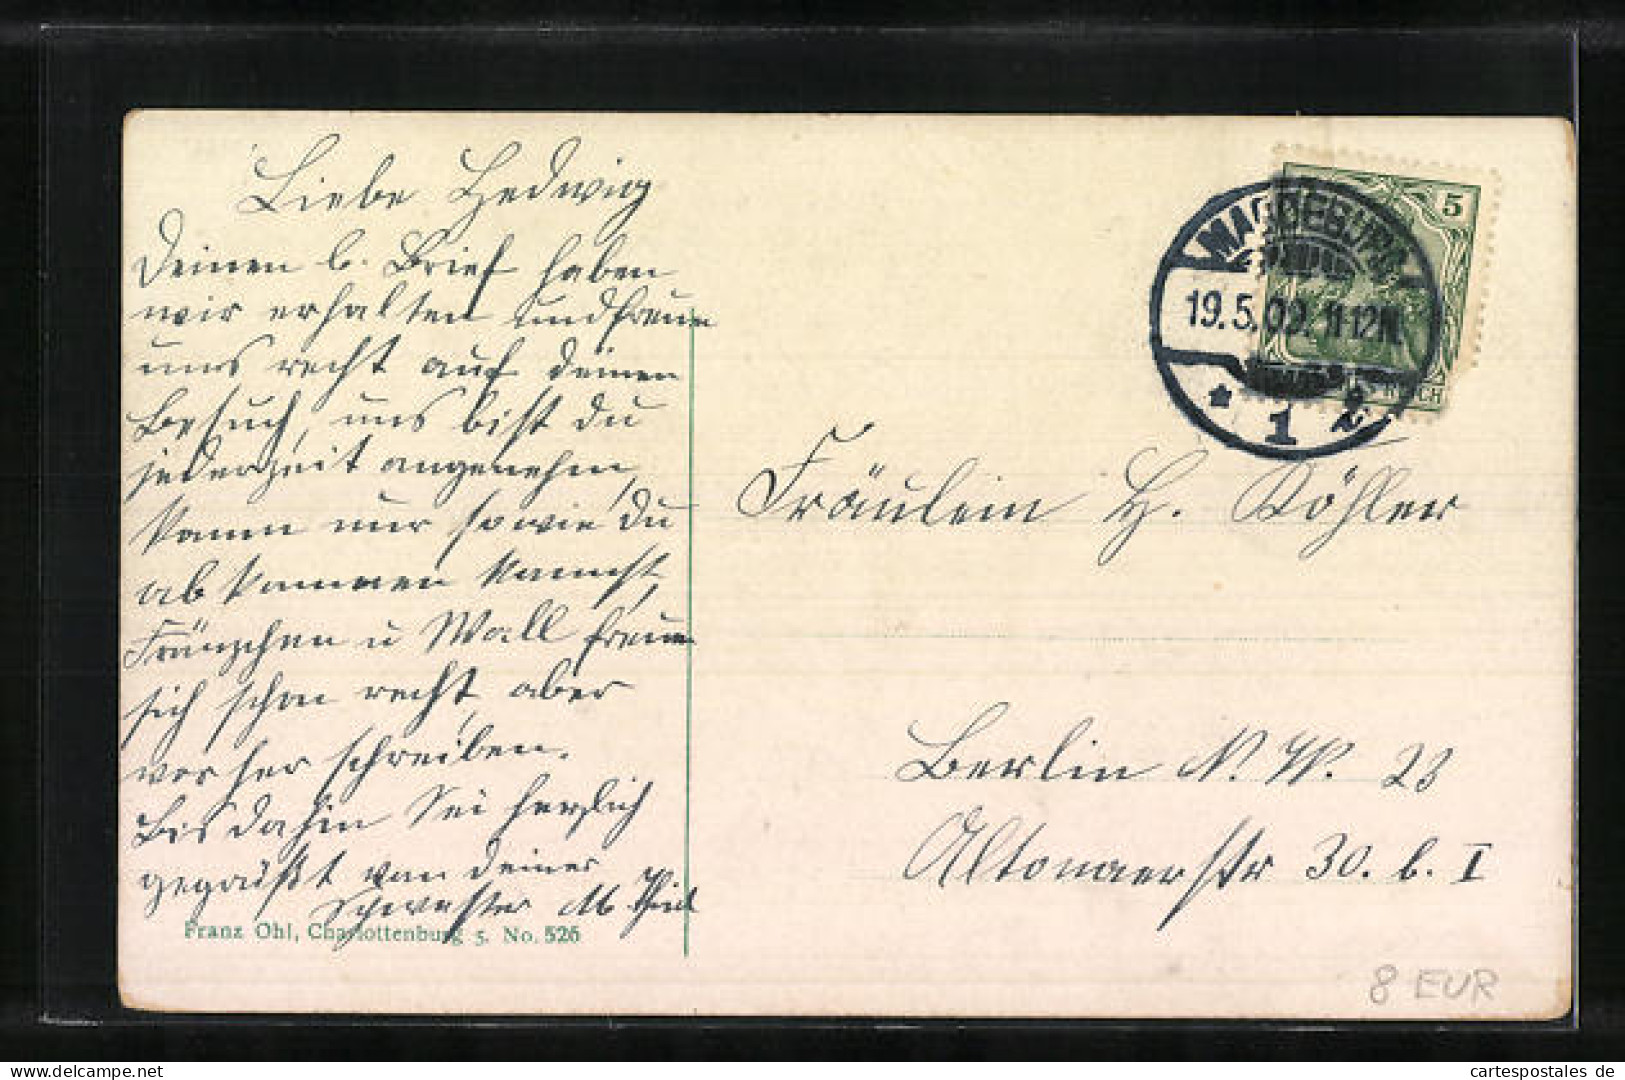 Liebe Hedwig
Deinen l. Brief haben
wir erhalten und freuen
uns recht auf Deinen
Besuch, uns bist Du
jederzeit angenehm,
komm nur sowie Du
abkommen kannst,
Fränzchen u Wall freuen
sich schon recht, aber
vorher schreiben.
Bis dahin Sei herzlich
gegrüßt von Deiner
Schwester M.
Franz Ohl, Charlottenburg 5. No. 526
MAGDEBURG
19.5.09. 11-12N.
* 1 z
5
REICH
Fräulein H. Köhler
Berlin N.W. 23
Altonaerstr 30. b. I
8 EUR
cartespostales de